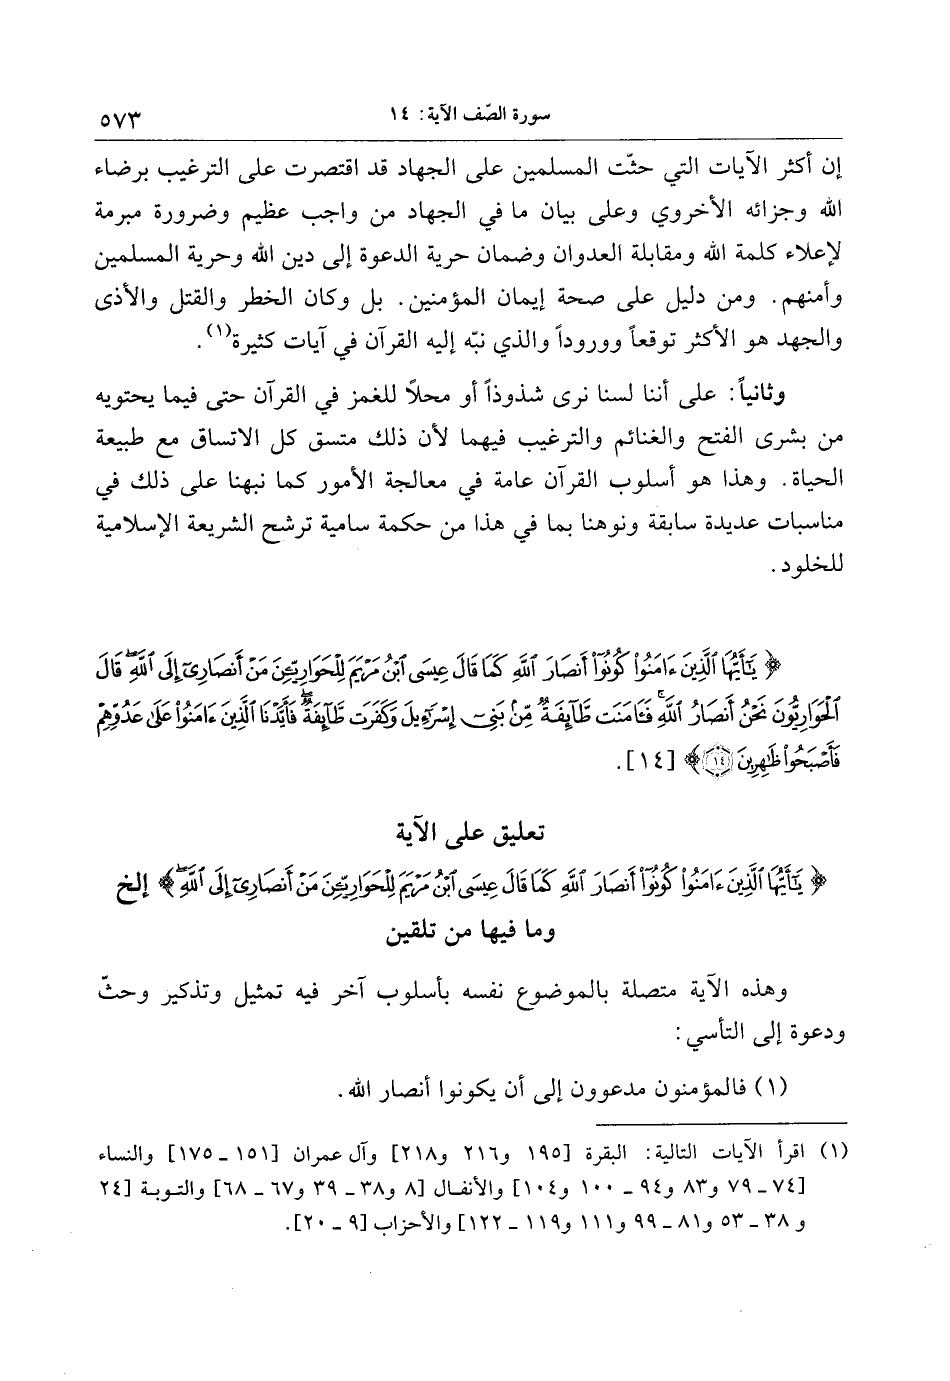 سورة الصّف الآية: ١٤ ٥٧٣
إن أكثر الآيات التي حثّت المسلمين على الجهاد قد اقتصرت على الترغيب برضاء
الله وجزائه الأخروي وعلى بيان ما في الجهاد من واجب عظيم وضرورة مبرمة
لإعلاء كلمة الله ومقابلة العدوان وضمان حرية الدعوة إلى دين الله وحرية المسلمين
وأمنهم. ومن دليل على صحة إيمان المؤمنين. بل وكان الخطر والقتل والأذى
والجهد هو الأكثر توقعاً ووروداً والذي نبّه إليه القرآن في آيات كثيرة(١).
وثانياً: على أننا لسنا نرى شذوذاً أو محلاً للغمز في القرآن حتى فيما يحتويه
من بشرى الفتح والغنائم والترغيب فيهما لأن ذلك متسق كل الاتساق مع طبيعة
الحياة. وهذا هو أسلوب القرآن عامة في معالجة الأمور كما نبهنا على ذلك في
مناسبات عديدة سابقة ونوهنا بما في هذا من حكمة سامية ترشح الشريعة الإسلامية
للخلود.
﴿ يَٰٓأَيُّهَا ٱلَّذِينَ ءَامَنُوا۟ كُونُوٓا۟ أَنصَارَ ٱللَّهِ كَمَا قَالَ عِيسَى ٱبْنُ مَرْيَمَ لِلْحَوَارِيِّۦنَ مَنْ أَنصَارِىٓ إِلَى ٱللَّهِۖ قَالَ
ٱلْحَوَارِيُّونَ نَحْنُ أَنصَارُ ٱللَّهِۖ فَـَٔامَنَت طَّآئِفَةٌ مِّنۢ بَنِىٓ إِسْرَٰٓءِيلَ وَكَفَرَت طَّآئِفَةٌۖ فَأَيَّدْنَا ٱلَّذِينَ ءَامَنُوا۟ عَلَىٰ عَدُوِّهِمْ
فَأَصْبَحُوا۟ ظَٰهِرِينَ ١٤ ﴾ [١٤].
تعليق على الآية
﴿ يَٰٓأَيُّهَا ٱلَّذِينَ ءَامَنُوا۟ كُونُوٓا۟ أَنصَارَ ٱللَّهِ كَمَا قَالَ عِيسَى ٱبْنُ مَرْيَمَ لِلْحَوَارِيِّۦنَ مَنْ أَنصَارِىٓ إِلَى ٱللَّهِۖ ﴾ إلخ
وما فيها من تلقين
وهذه الآية متصلة بالموضوع نفسه بأسلوب آخر فيه تمثيل وتذكير وحثّ
ودعوة إلى التأسي:
(١) فالمؤمنون مدعوون إلى أن يكونوا أنصار الله.
(١) اقرأ الآيات التالية: البقرة [١٩٥ و٢١٦ و٢١٨] وآل عمران [١٥١ ـ ١٧٥] والنساء
[٧٤ ـ ٧٩ و٨٣ و٩٤ ـ ١٠٠ و١٠٤] والأنفال [٨ و٣٨ ـ ٣٩ و٦٧ ـ ٦٨] والتوبة [٢٤
و ٣٨ ـ ٥٣ و٨١ ـ ٩٩ و١١١ و١١٩ ـ ١٢٢] والأحزاب [٩ ـ ٢٠].